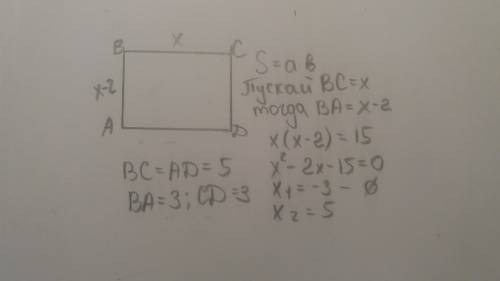 B x C
x-2
A D
S = a в
Пускай BC=x
тогда BA=x-2
x(x-2)=15
x²-2x-15=0
x₁=-3 - ∅
x₂=5
BC=AD=5
BA=3; CD=3